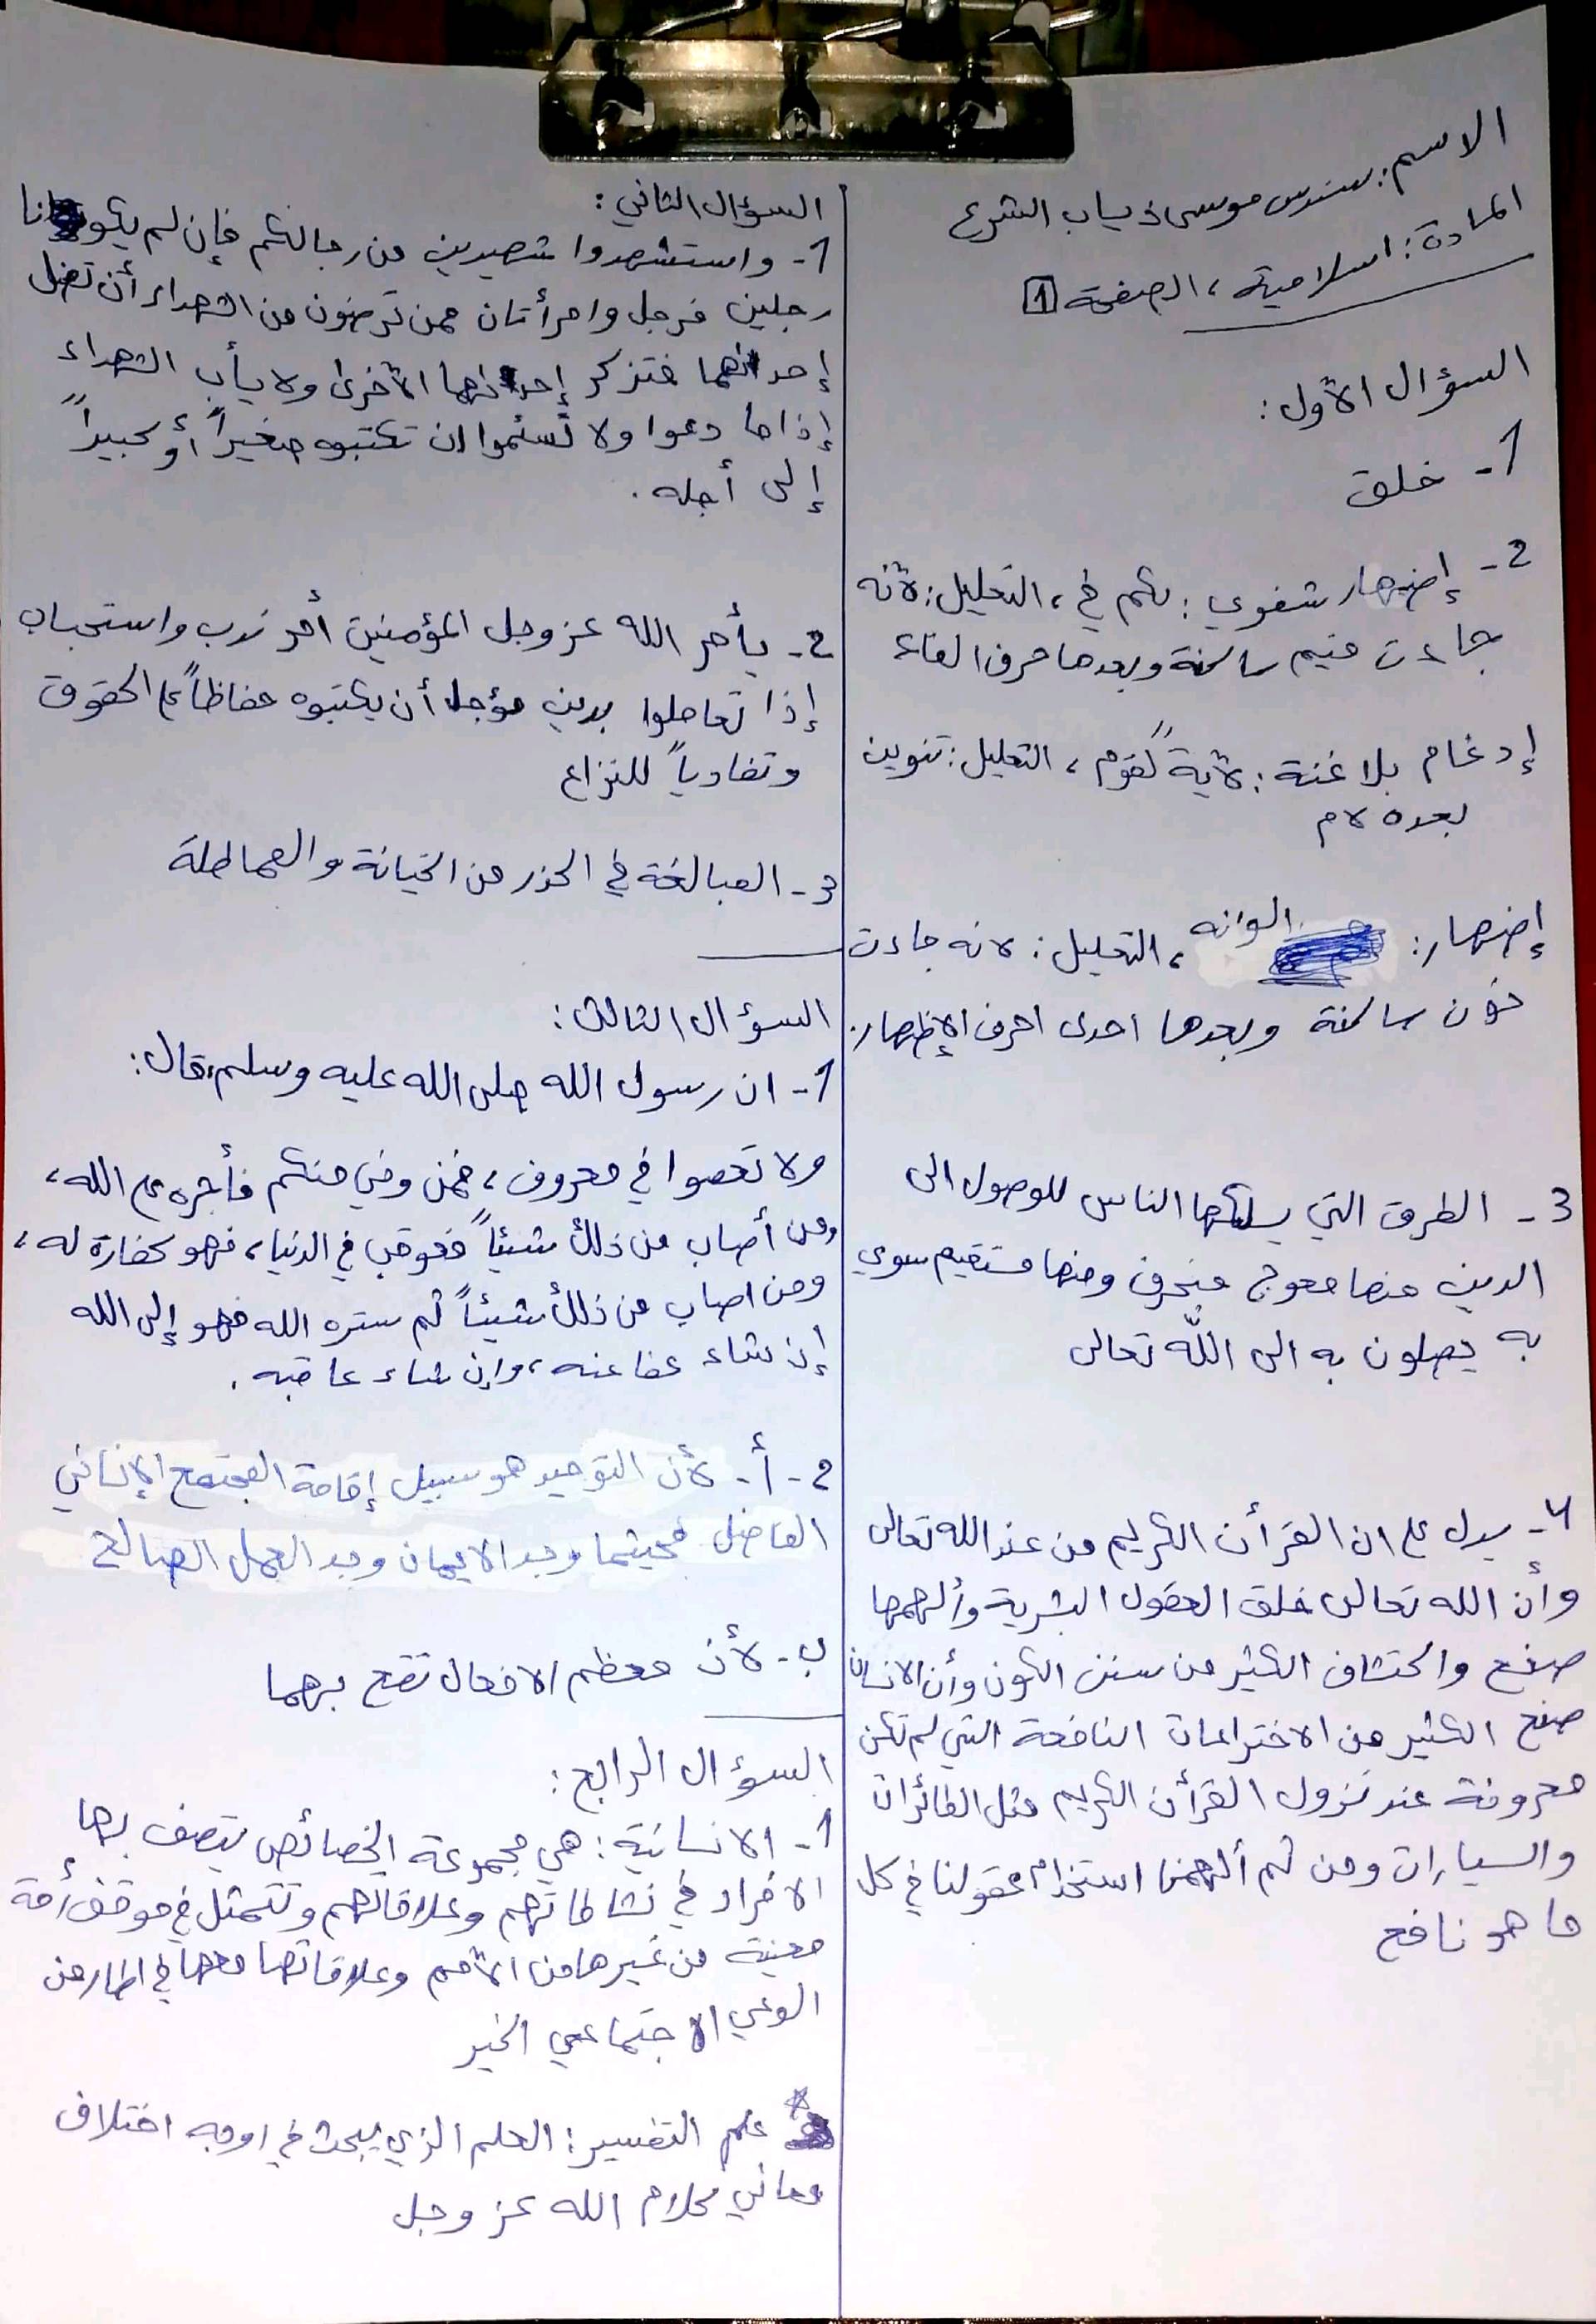 الاسم: سندس موسى ذياب الشرع
المادة: اسلامية، الصفحة 1
السؤال الأول:
1- خلق
2- إضهار شفوي: لكم في، التعليل: لأنه
جاءت ميم ساكنة وبعدها حرف الفاء
إدغام بلا غنة: لآيةً لقوم، التعليل: تنوين
بعده لام
إضهار: الوانه، التعليل: لانه جاءت
نون ساكنة وبعدها احدى احرف الإظهار.
3- الطرق التي يسلكها الناس للوصول الى
الدين منها معوج منحرف ومنها مستقيم سوي
به يصلون به الى الله تعالى
4- يدل على ان القرأن الكريم من عند الله تعالى
وأن الله تعالى خلق العقول البشرية وألهمها
صنع واكتشاف الكثير من سنن الكون وأن الانسان
صنع الكثير من الاختراعات النافعة التي لم تكن
معروفة عند نزول القرأن الكريم مثل الطائرات
والسيارات ومن ثم ألهمنا استخدام عقولنا في كل
ما هو نافع
السؤال الثاني:
1- واستشهدوا شهيدين من رجالكم فإن لم يكونا
رجلين فرجل وامرأتان ممن ترضون من الشهداء أن تضل
إحداهما فتذكر إحداهما الأخرى ولا يأب الشهداء
إذا ما دعوا ولا تسئموا ان تكتبوه صغيراً أو كبيراً
إلى أجله.
2- يأمر الله عز وجل المؤمنين أمر ندب واستحباب
إذا تعاملوا بدين مؤجل أن يكتبوه حفاظاً على الحقوق
وتفادياً للنزاع
3- المبالغة في الحذر من الخيانة والمماطلة
السؤال الثالث:
1- ان رسول الله صلى الله عليه وسلم، قال:
ولا تعصوا في معروف، فمن وفي منكم فأجره على الله،
ومن أصاب من ذلك شيئاً فعوقب في الدنيا، فهو كفارة له،
ومن اصاب من ذلك شيئاً ثم ستره الله فهو إلى الله
إن شاء عفا عنه، وإن شاء عاقبه.
2- أ- لأن التوحيد هو سبيل إقامة المجتمع الإنساني
الفاضل فحيثما وجد الايمان وجد العمل الصالح
ب- لأن معظم الافعال تقع بهما
السؤال الرابع:
1- الانسانية: هي مجموعة الخصائص يتصف بها
الافراد في نشاطاتهم وعلاقاتهم وتتمثل في موقف أمة
معينة من غيرها من الأمم وعلاقاتها معها في اطار من
الوعي الاجتماعي الخير
* علم التفسير: العلم الذي يبحث في اوجه اختلاف
معاني كلام الله عز وجل